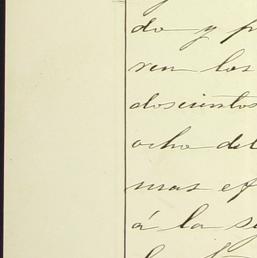 do y p
ren los
doscientos
ocho del
mas ef
á la s